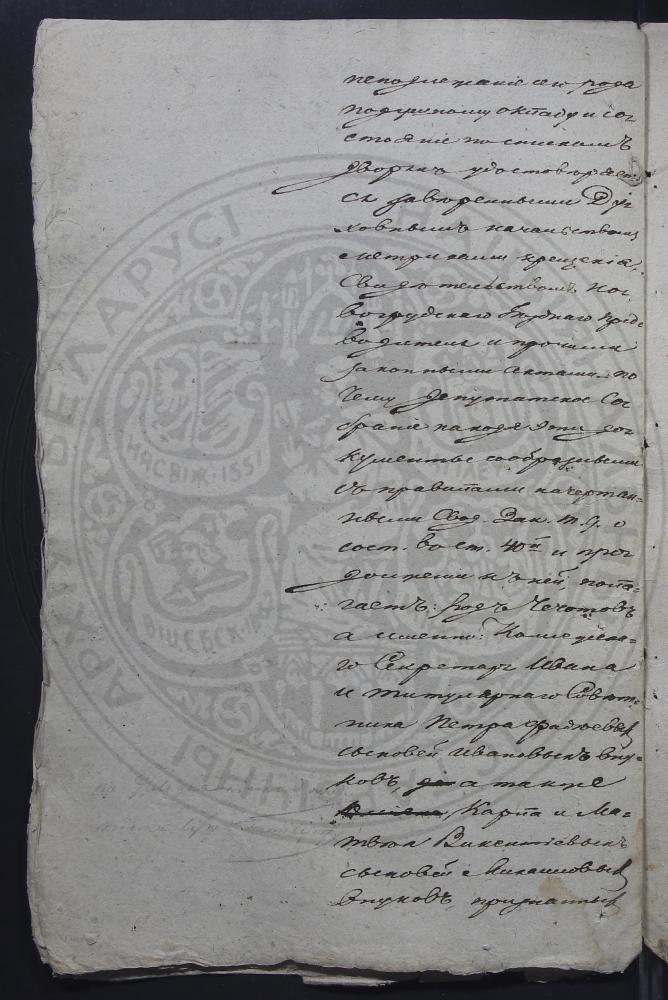 неподлежание сего рода
подушному окладу и со-
стояние по спискам
дворян удостоверяет-
ся заверенными Ду-
ховным начальством
метриками крещения,
Свидетельством Но-
вогрудскаго Уезднаго Пред-
водителя и прочими
законными актами. по
чему Депутатское Со-
брание находя эти до-
кументы сообразными
съ правилами начертан-
ными Свод. Зак. т. 9. о
сост. въ ст. 40й и про-
должении къ ней, пола-
гаетъ: родъ Чечотовъ
а именно: Коллежска-
го Секретаря Ивана
и титулярнаго Совет-
ника Петра Фадеевыхъ
сыновей Ивановыхъ вну-
ковъ, а также
Карпа и Ма-
твея Викентiевыхъ
сыновей Михайловыхъ
внуковъ, признанныхъ
АРХІЎ БЕЛАРУСІ
НЯСВІЖ·1551
ВІЦЕБСК